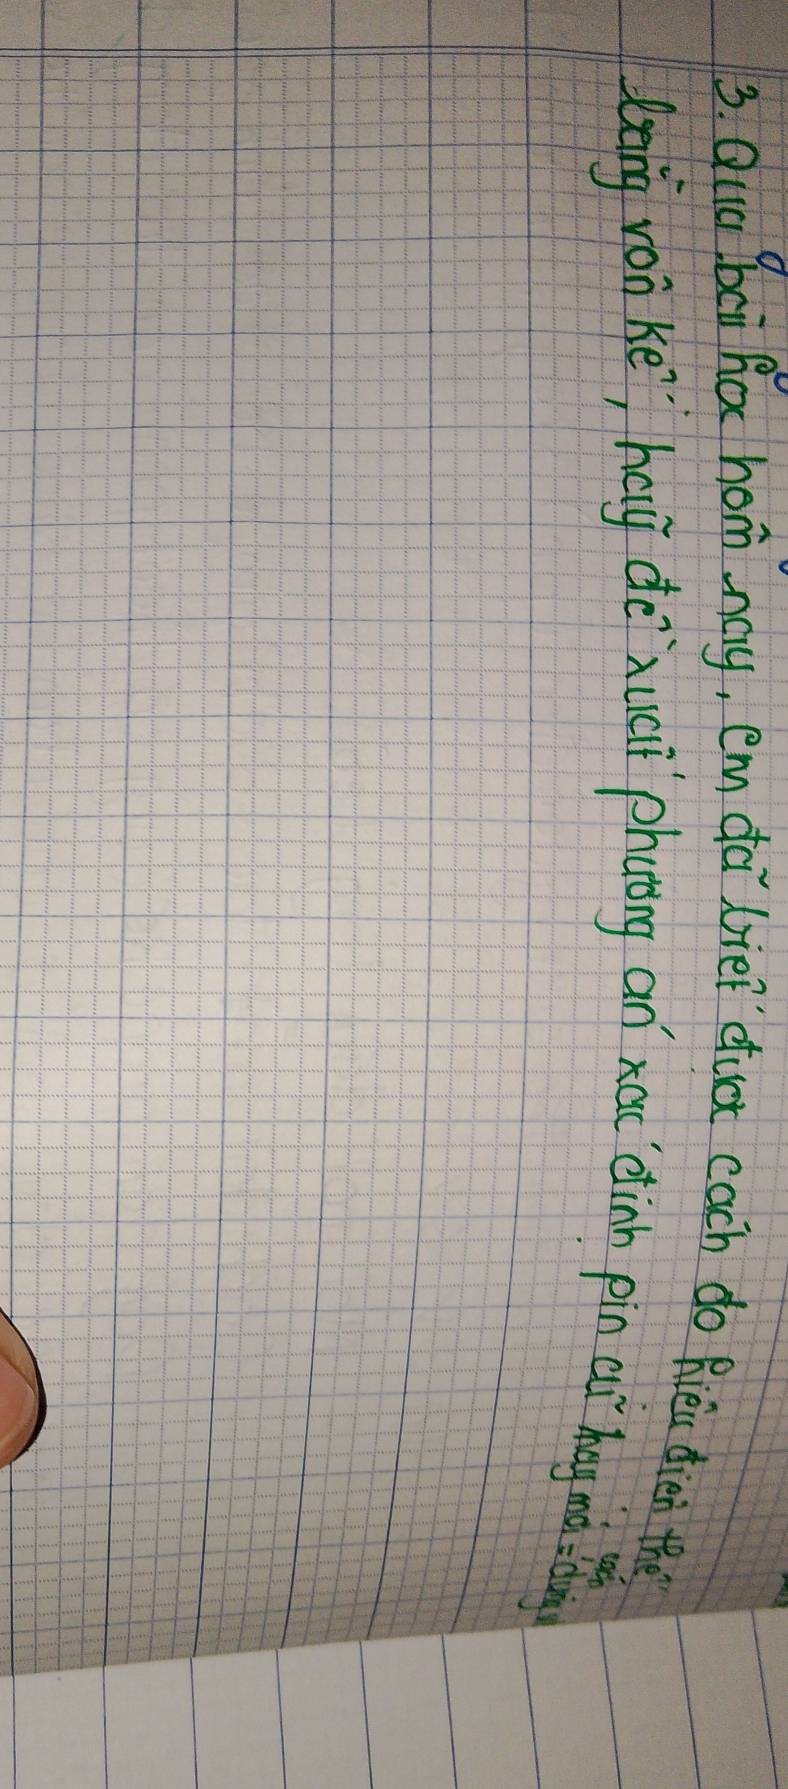 3. Qua bài học hôm nay, em đã biết được cách đo hiệu điện thế
bằng vôn kế, hãy đề xuất phương án xác định pin cũ hay mới